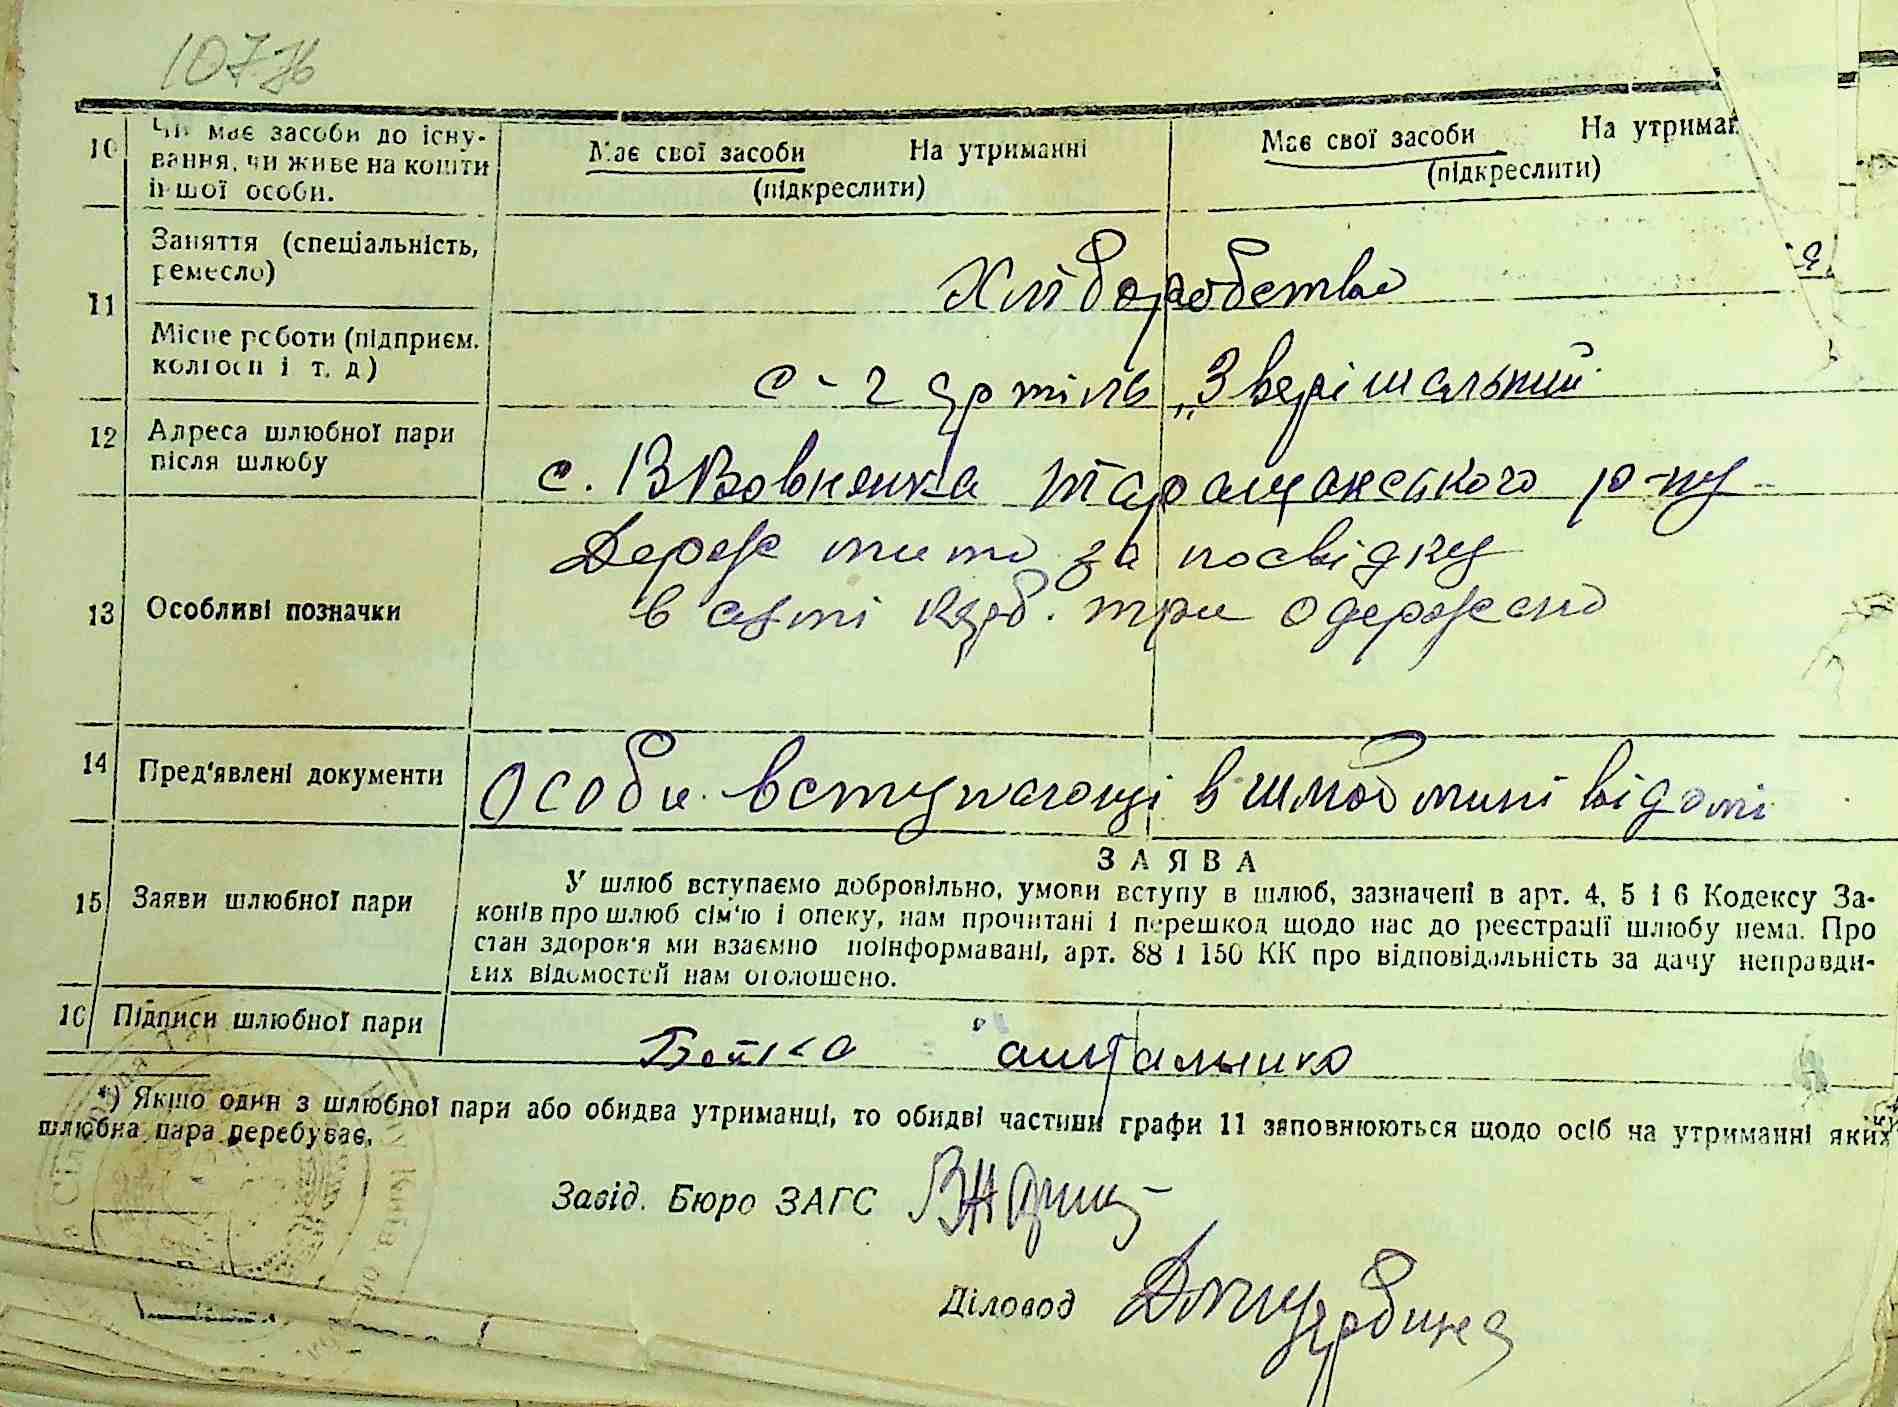 107зв
10 Чи має засоби до існу-
вання, чи живе на кошти
іншої особи.
Має свої засоби На утриманні
(підкреслити)
Має свої засоби На утриман
(підкреслити)
11 Заняття (спеціальність,
ремесло)
Хліборобство
Місце роботи (підприєм.
колгосп і т. д)
с-г артіль „Звірі
12 Адреса шлюбної пари
після шлюбу
с. ВВовнянка Таращанського р-ну
13 Особливі позначки
Держ мито за посвідку
в сумі карб. три одержано
14 Пред'явлені документи
Особи вступающі в шлюб мині відомі
15 Заяви шлюбної пари
ЗАЯВА
У шлюб вступаємо добровільно, умови вступу в шлюб, зазначені в арт. 4, 5 і 6 Кодексу За-
конів про шлюб сім'ю і опеку, нам прочитані і перешкод щодо нас до реєстрації шлюбу нема. Про
стан здоров'я ми взаємно поінформавані, арт. 88 і 150 КК про відповідальність за дачу неправди-
вих відомостей нам оголошено.
16 Підписи шлюбної пари
*) Якшо один з шлюбної пари або обидва утриманці, то обидві частини графи 11 заповнюються щодо осіб на утриманні яких
шлюбна пара перебуває.
Завід. Бюро ЗАГС
Діловод